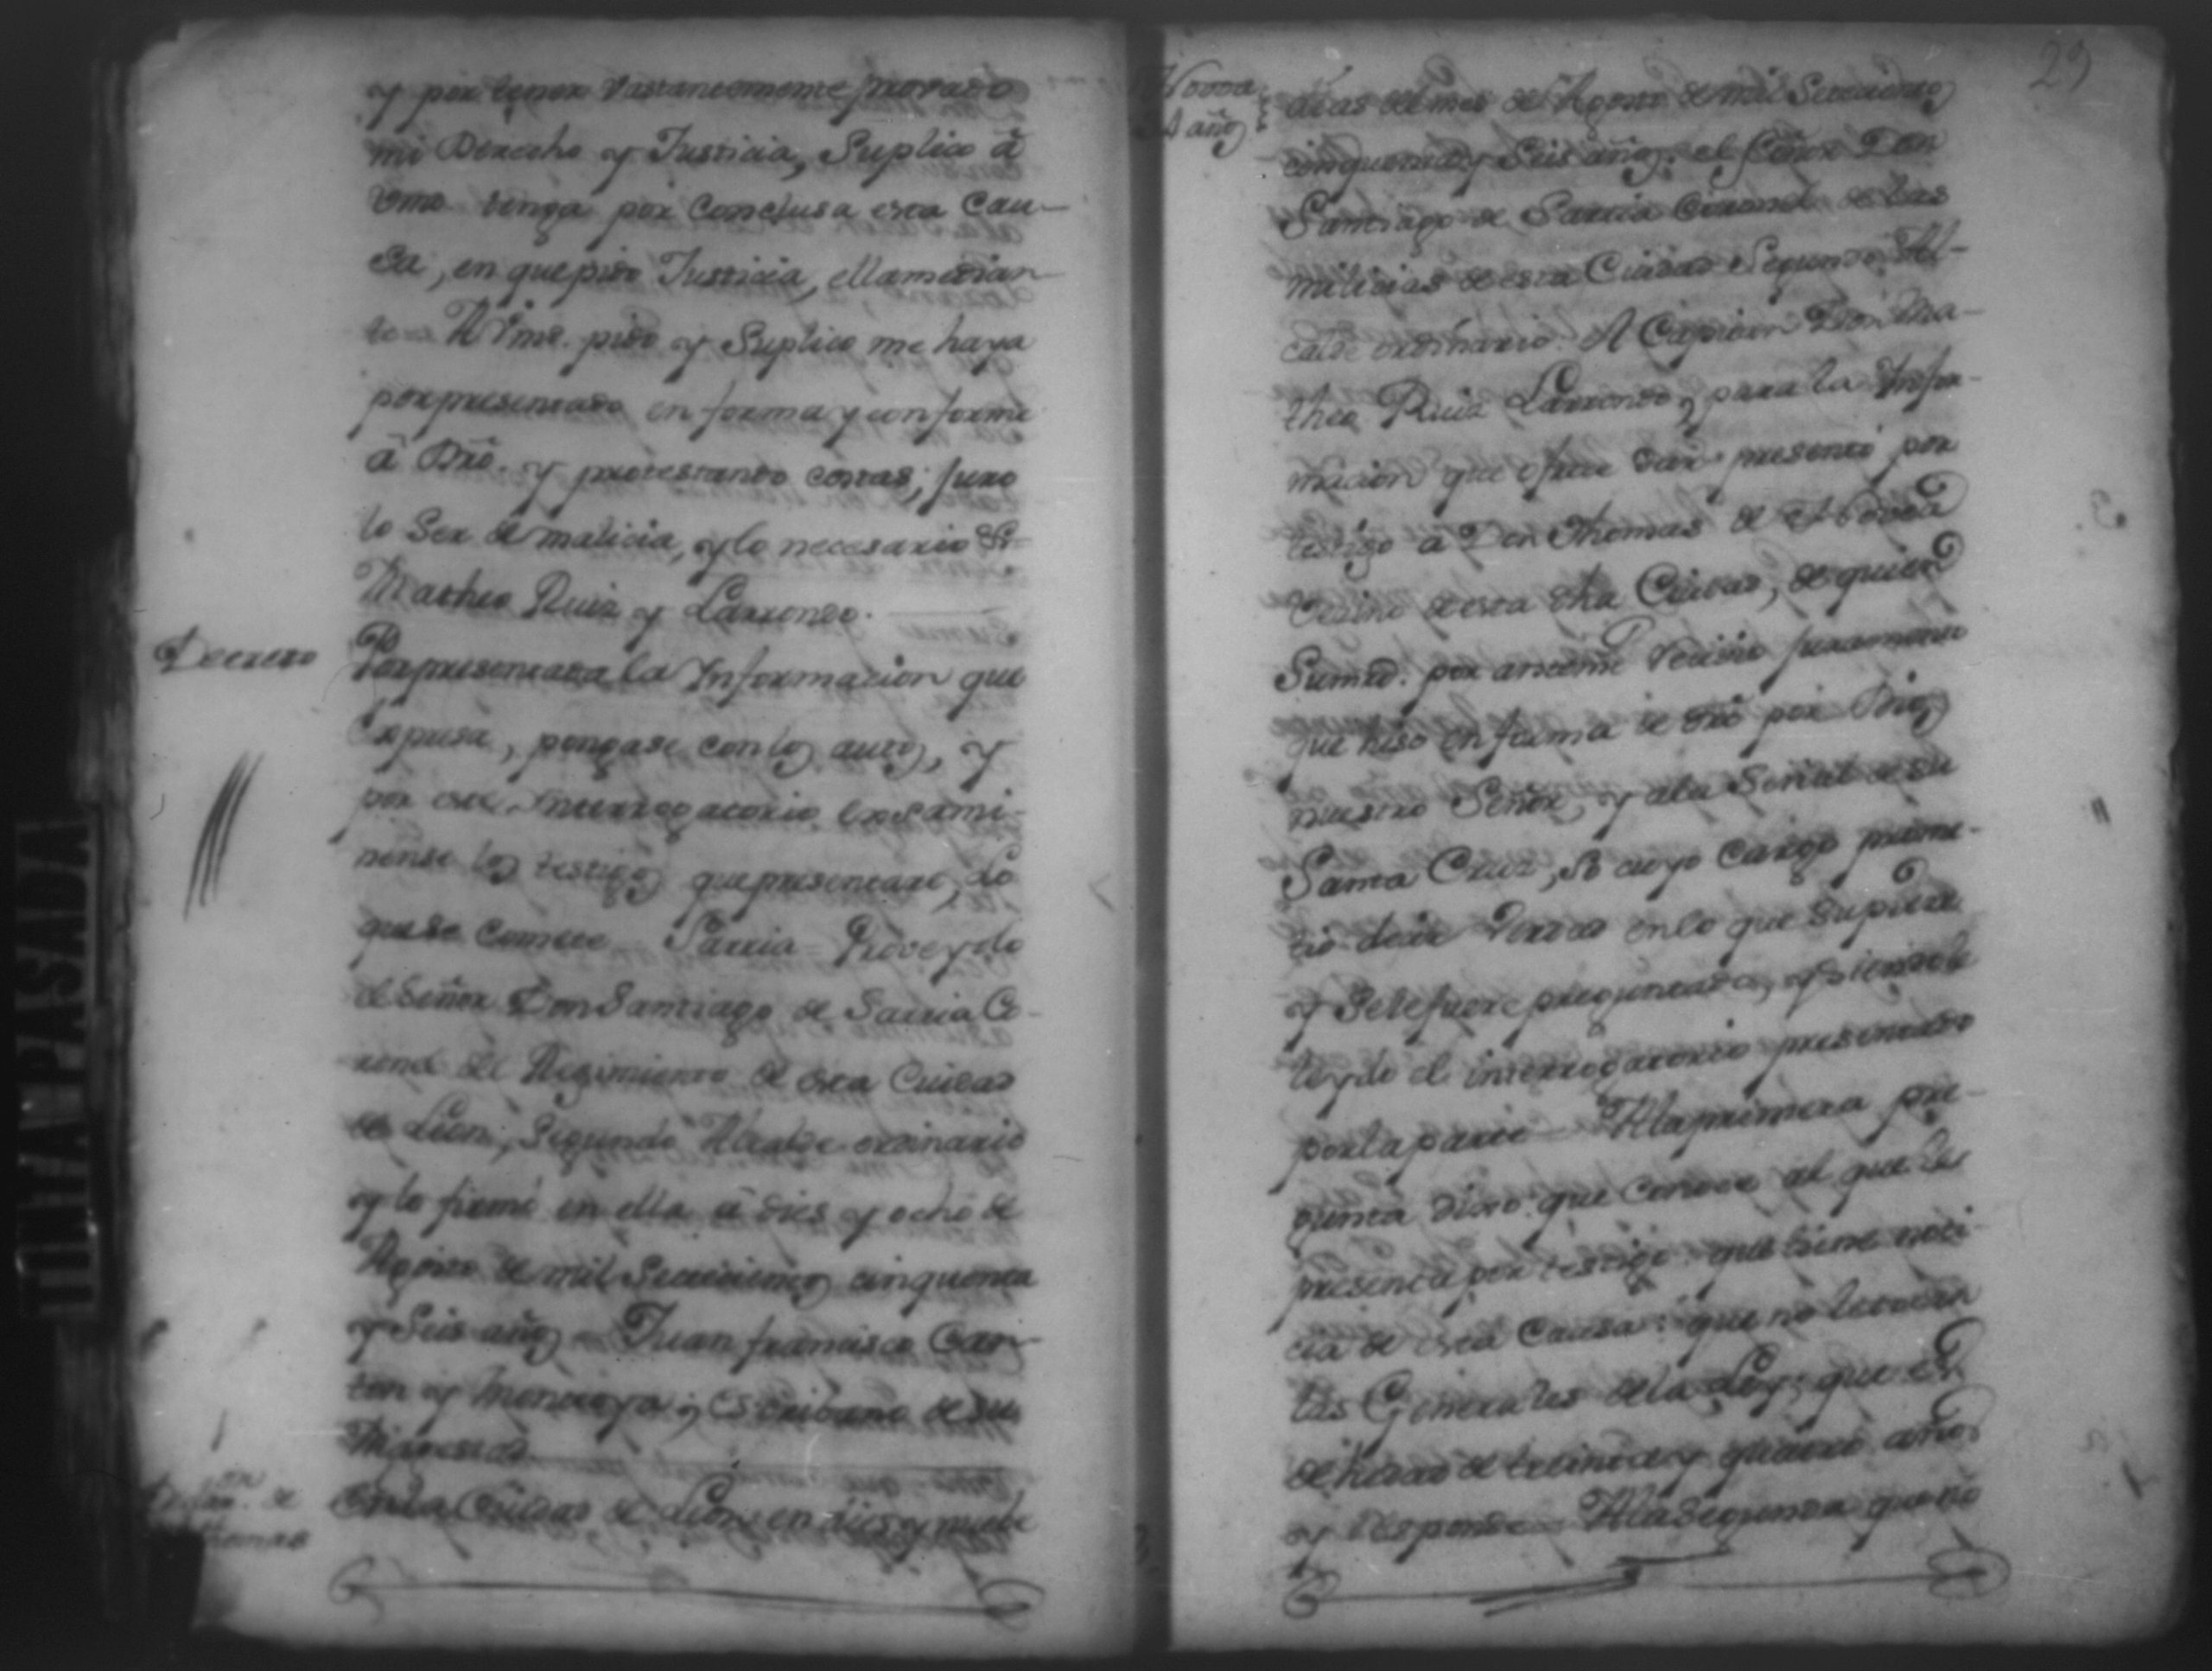 y por tener vastantemente provado
mi Derecho y Justicia, Suplico â
Vmd tenga por Conclusa esta Cau-
sa, en que pido Justicia, ella median-
te = A Vmd. pido y Suplico me haya
por presentado en forma y conforme
â Dro. y protestando costas; juro
lo Ser de malicia, y lo necesario &ª=
Matheo Ruiz y Larrondo.
Decreto
Por presentada la Informacion que
Expresa, pongase con los autos, y
por este Interrogatorio Exsami-
nense los testigos que presentare, Lo
que se Comete = Sarria = Proveydo
el Señor Don Santiago de Sarria Co-
ronel del Regimiento de esta Ciudad
de Leon, Segundo Alcalde ordinario
y lo firmó en ella â dies y ocho de
Agosto de mil Setecientos cinquenta
y Seis años = Juan francisco
y Escribano de Su
Magestad
de
thomas
En la Ciudad de Leon, en dies y nuebe
29
34 años
dias del mes de Agosto de mil Setecientos
cinquenta y Seis años: el Señor Don
Santiago de Sarria Coronel de las
milicias de esta Ciudad Segundo Al-
calde ordinario. El Capitan Don Ma-
theo Ruiz Larrondo, para la Infor-
macion que ofrece dar presentó por
testigo â Don Thomas de
vesino de esta dha Ciudad, de quien
Su md. por ante mi Recivio juramento
que hiso en forma de dro por Dios
nuestro Señor, y a la Señal de Su
Santa Cruz, So cuyo Cargo prome-
tio desir Verdad en lo que Supiere
y Se le fuere preguntado, y Siendole
leydo el interrogatorio presentado
por la parte = A la primera pre-
gunta dixo: que Conose al que lo
presenta por testigo: que tiene noti-
cia de esta Causa: que no le tocan
las Generales de la Ley; que es
de hedad de treinta y quatro años
y Responde = A la Segunda que no